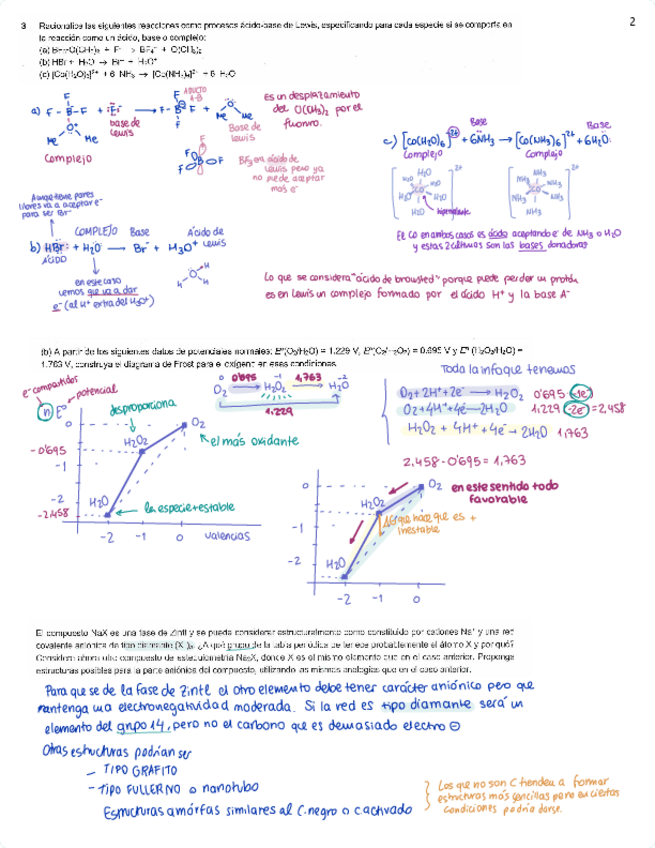 2
3 Racionalice las siguientes reacciones como procesos ácido-base de Lewis, especificando para cada especie si se comporta en
la reacción como un ácido, base o complejo:
(b) HBr + H₂O → Br⁻ + H₃O⁺
(c) [Co(H₂O)₆]²⁺ + 6 NH₃ → [Co(NH₃)₆]²⁺ + 6 H₂O
a)
base de Lewis
Complejo
ADUCTO A-B
Base de Lewis
Es un desplazamiento
del O(CH₃)₂ por el
fluoruro.
BF₃ era ácido de
Lewis pero ya
no puede aceptar
más e⁻
Base
Base
c) [Co(H₂O)₆]²⁺ + 6NH₃ → [Co(NH₃)₆]²⁺ + 6H₂O
Complejo
Complejo
El Co en ambos casos es ácido aceptando e⁻ de NH₃ o H₂O
y estas 2 últimas son las bases donadoras
Aunque tiene pares
libres va a aceptar e⁻
para ser Br⁻
COMPLEJO Base Ácido de Lewis
b) HBr + H₂O → Br⁻ + H₃O⁺
ÁCIDO
en este caso
vemos que va a dar
e⁻ (al H⁺ extra del H₃O⁺)
Lo que se considera "ácido de brownsted" porque puede perder un protón
es en Lewis un complejo formado por el ácido H⁺ y la base A⁻
(b) A partir de los siguientes datos de potenciales normales: E°(O₂/H₂O) = 1.229 V, E°(O₂/H₂O₂) = 0.695 V y E° (H₂O₂/H₂O) =
1.763 V, construya el diagrama de Frost para el oxígeno en esas condiciones.
e⁻ compartidos
potencial
n E°
desproporciona
O₂
el más oxidante
H₂O₂
H₂O
la especie + estable
-0'695
-1
-2
-2.458
-2 -1 0 valencias
0 0'695 -1 1,763 -2
O₂ → H₂O₂ → H₂O
1.229
Toda la info que tenemos
O₂ + 2H⁺ + 2e⁻ → H₂O₂ 0'695
O₂ + 4H⁺ + 4e⁻ → 2H₂O 1.229 -2e⁻ = 2,458
H₂O₂ + 4H⁺ + 4e⁻ → 2H₂O 1,763
2.458 - 0'695 = 1,763
0
-1
-2
O₂
H₂O₂
H₂O
en este sentido todo
favorable
ΔG que hace que es +
inestable
-2 -1 0
El compuesto NaX es una fase de Zintl y se puede considerar estructuralmente como constituido por cationes Na⁺ y una red
covalente aniónica de tipo diamante (X⁻)ₙ. ¿A qué grupo de la tabla periódica pertenece probablemente el átomo X y por qué?
Considere ahora otro compuesto de estequiometría Na₂X, donde X es el mismo elemento que en el caso anterior. Proponga
estructuras posibles para la parte aniónica del compuesto, utilizando las mismas analogías que en el caso anterior.
Para que se de la fase de Zintl el otro elemento debe tener carácter aniónico pero que
mantenga una electronegatividad moderada. Si la red es tipo diamante será un
elemento del grupo 14, pero no el carbono que es demasiado electro ⊖
Otras estructuras podrían ser
– TIPO GRAFITO
– TIPO FULLERNO o nanotubo
Estructuras amórfas similares al C.negro o c.activado
Los que no son C tienden a formar
estructuras más sencillas pero en ciertas
condiciones podría darse.